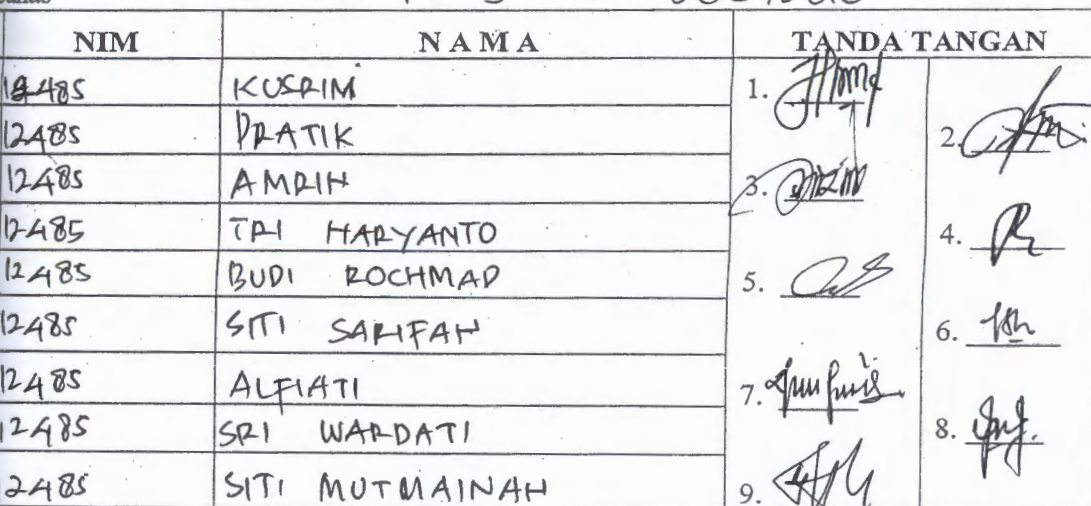 NIM NAMA TANDA TANGAN
12485 KUSRIM 1.
12485 PRATIK 2.
12485 AMRIH 3.
12485 TRI HARYANTO 4.
12485 BUDI ROCHMAD 5.
12485 SITI SARIFAH 6.
12485 ALFIATI 7.
12485 SRI WARDATI 8.
2485 SITI MUTMAINAH 9.